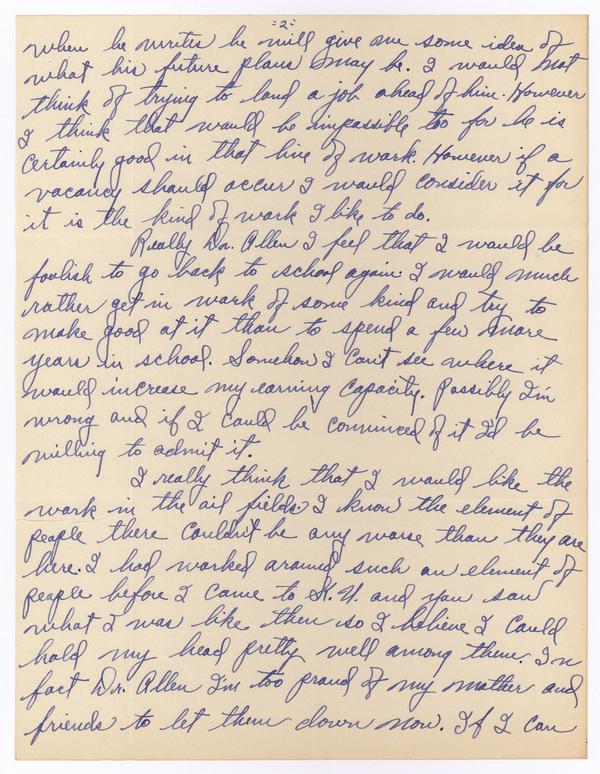 "2"
when he writes he will give me some idea of
what his future plans may be. I would not
think of trying to land a job ahead of him. However
I think that would be impossible too for he is
certainly good in that line of work. However if a
vacancy should occur I would consider it for
it is the kind of work I like to do.
Really Dr. Allen I feel that I would be
foolish to go back to school again. I would much
rather get in work of some kind and try to
make good at it than to spend a few more
years in school. Somehow I can't see where it
would increase my earning capacity. Possibly I'm
wrong and if I could be convinced of it I'd be
willing to admit it.
I really think that I would like the
work in the oil fields. I know the element of
people there couldn't be any worse than they are
here. I had worked around such an element of
people before I came to K.U. and you saw
what I was like then so I believe I could
hold my head pretty well among them. In
fact Dr. Allen I'm too proud of my mother and
friends to let them down now. If I can